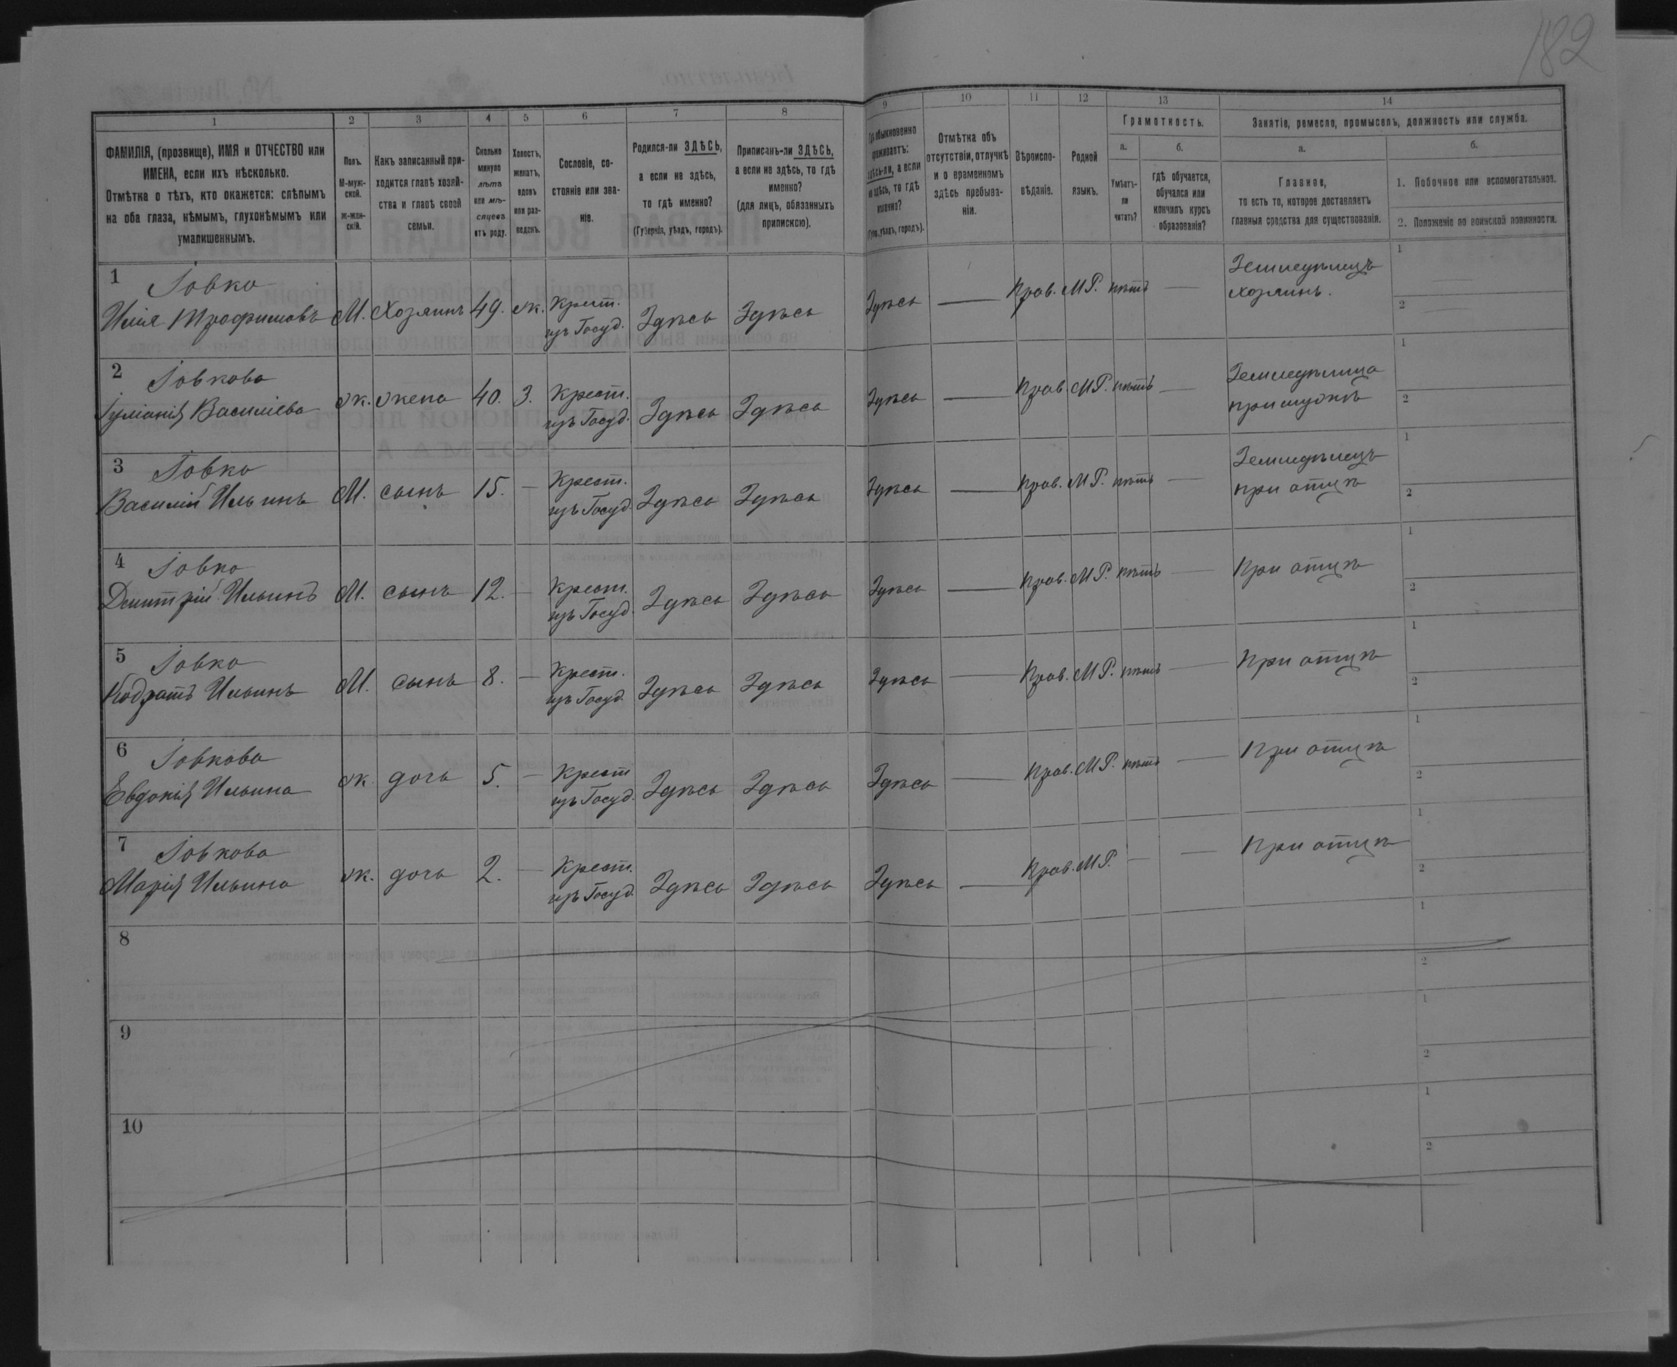 182
1 2 3 4 5 6 7 8 9 10 11 12 13 14
ФАМИЛІЯ, (прозвище), ИМЯ и ОТЧЕСТВО или
ИМЕНА, если ихъ нѣсколько.
Отмѣтка о тѣхъ, кто окажется: слѣпымъ
на оба глаза, нѣмымъ, глухонѣмымъ или
умалишеннымъ.
Полъ.
М-муж-
ской.
Ж-жен-
скій.
Какъ записанный при-
ходится главѣ хозяй-
ства и главѣ своей
семьи.
Сколько
минуло
лѣтъ
или мѣ-
сяцевъ
отъ роду.
Холостъ,
женатъ,
вдовъ
или раз-
веденъ.
Сословіе, со-
стояніе или зва-
ніе.
Родился-ли ЗДѢСЬ,
а если не здѣсь,
то гдѣ именно?
(Губернія, уѣздъ, городъ).
Приписанъ-ли ЗДѢСЬ,
а если не здѣсь, то гдѣ
именно?
(для лицъ, обязанныхъ
припискою).
обыкновенно
проживаетъ:
здѣсь-ли, а если
не здѣсь, то гдѣ
именно?
(Губ., уѣздъ, городъ).
Отмѣтка объ
отсутствіи, отлучкѣ
и о временномъ
здѣсь пребыва-
ніи.
Вѣроиспо-
вѣданіе.
Родной
языкъ.
Грамотность.
а.
Умѣетъ-
ли
читать?
б.
гдѣ обучается,
обучался или
кончилъ курсъ
образованія?
Занятіе, ремесло, промыселъ, должность или служба.
а.
Главное,
то есть то, которое доставляетъ
главныя средства для существованія.
б.
1. Побочное или вспомогательное.
2. Положеніе по воинской повинности.
1 Іовко Земледѣлецъ 1
Илія Трофимовъ М. Хозяинъ 49. ж. Крест. изъ Госуд. Здѣсь Здѣсь Здѣсь — Прав. М.Р. нѣтъ — хозяинъ. 2
2 Іовкова Земледѣлица 1
Іуліанія Василіева ж. жена 40. З. Крест. изъ Госуд. Здѣсь Здѣсь Здѣсь — Прав. М.Р. нѣтъ — при мужѣ 2
3 Іовко Земледѣлецъ 1
Василій Ильинъ М. сынъ 15. — Крест. изъ Госуд. Здѣсь Здѣсь Здѣсь — Прав. М.Р. нѣтъ — при отцѣ 2
4 Іовко 1
Дмитрій Ильинъ М. сынъ 12. — Крест. изъ Госуд. Здѣсь Здѣсь Здѣсь — Прав. М.Р. нѣтъ — При отцѣ 2
5 Іовко 1
Кодратъ Ильинъ М. сынъ 8. — Крест. изъ Госуд. Здѣсь Здѣсь Здѣсь — Прав. М.Р. нѣтъ — При отцѣ 2
6 Іовкова 1
Евдокія Ильина ж. дочь 5. — Крест изъ Госуд. Здѣсь Здѣсь Здѣсь — Прав. М.Р. нѣтъ — При отцѣ 2
7 Іовкова 1
Марія Ильина ж. дочь 2. — Крест. изъ Госуд. Здѣсь Здѣсь Здѣсь — Прав. М.Р. — — При отцѣ 2
8 1 2
9 1 2
10 1 2